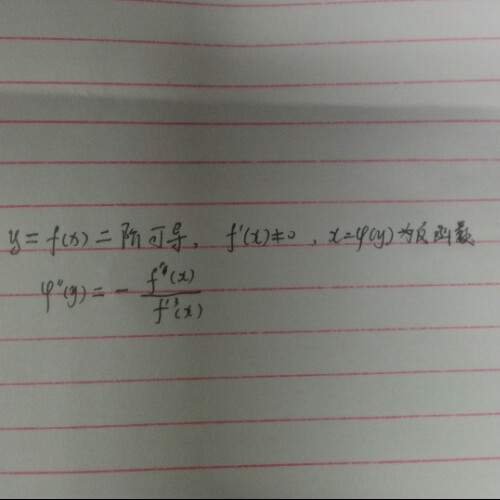 y=f(x)二阶可导, f'(x)≠0, x=φ(y)为反函数
φ''(y)=-f''(x)/f'³(x)